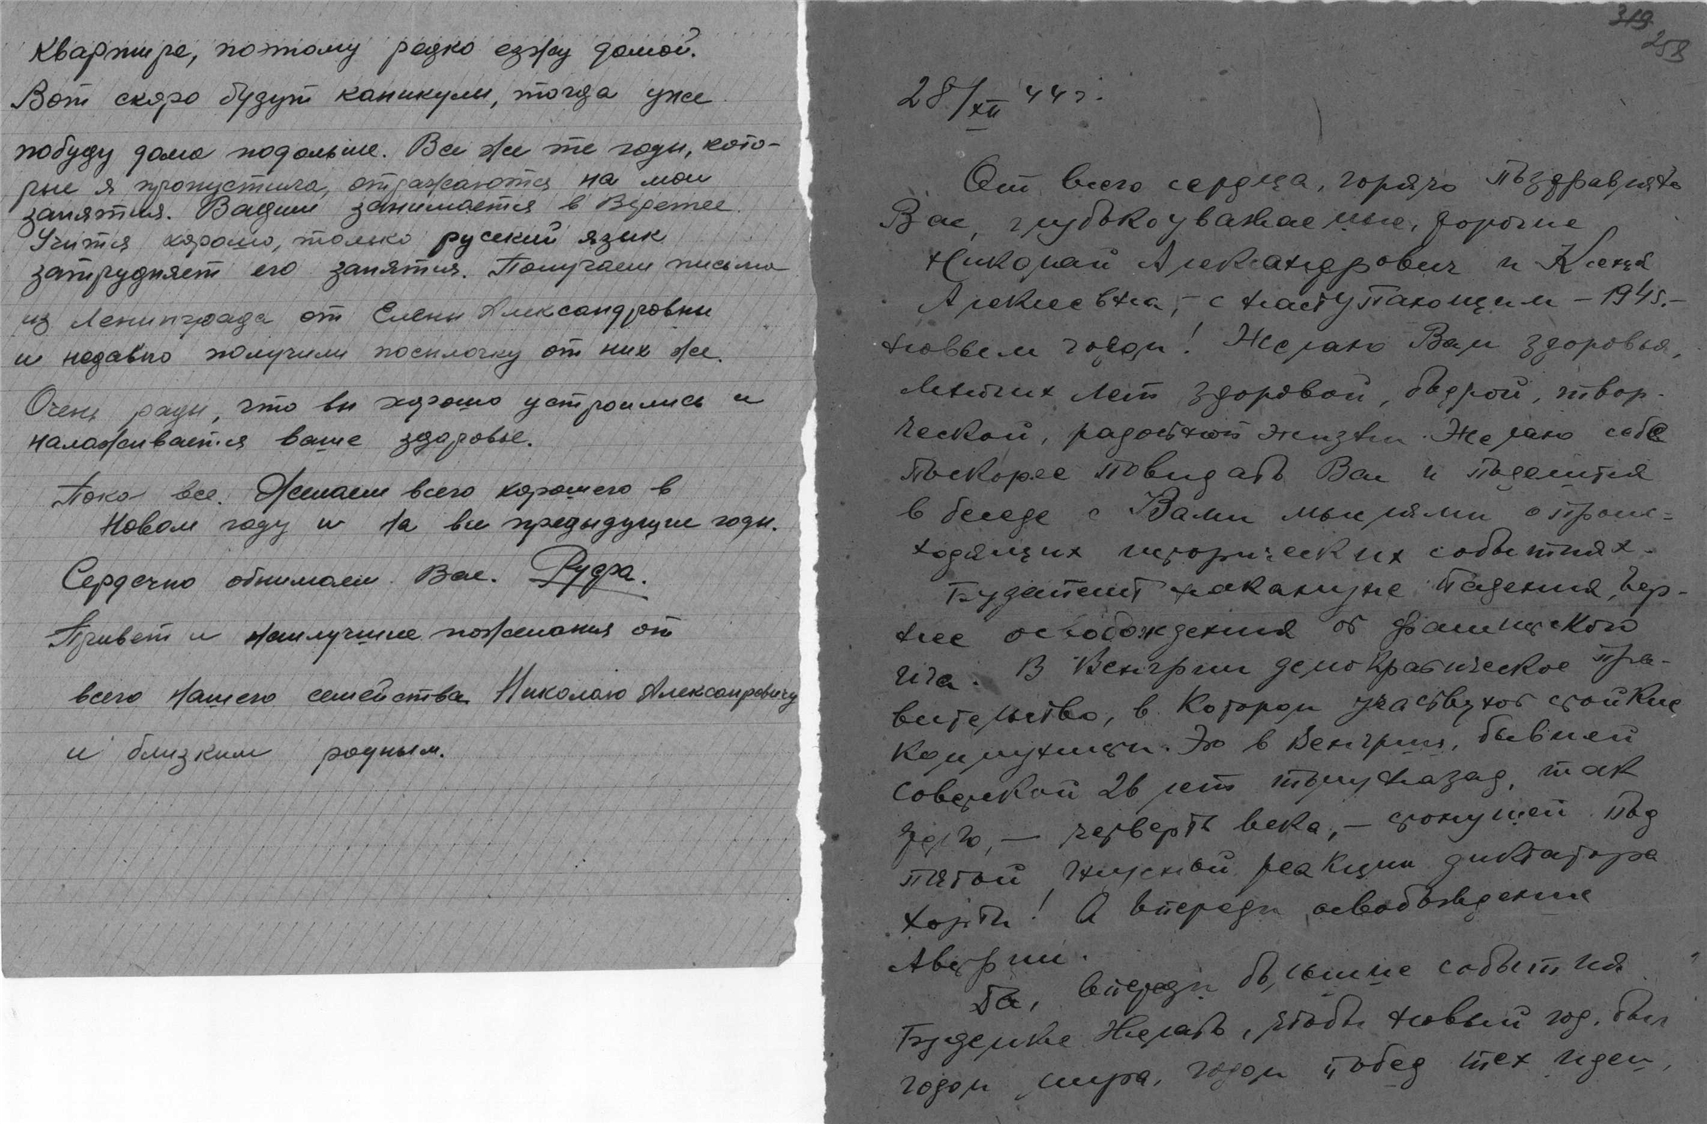 квартире, поэтому редко езжу домой.
Вот скоро будут каникулы, тогда уже
побуду дома подольше. Все же те годы, кото-
рые я пропустила, отражаются на мои
занятия. Вадим занимается в
Учится хорошо, только русский язык
затрудняет его занятия. Получаем письма
из Ленинграда от Елены Александровны
и недавно получили посылочку от них же.
Очень рады, что вы хорошо устроились и
налаживается ваше здоровье.
Пока все. Желаем всего хорошего в
Новом году и на все предыдущие годы.
Сердечно обнимаем Вас. Руфа.
Привет и наилучшие пожелания от
всего нашего семейства Николаю Александровичу
и близким родным.
319
259
28/XII 44 г.
От всего сердца, горячо поздравляю
Вас, глубокоуважаемые, дорогие
Николай Александрович и Ксения
Алексеевна, – с наступающим – 1945 –
новым годом! Желаю Вам здоровья,
многих лет здоровой, бодрой, твор-
ческой, радостной жизни. Желаю себе
поскорее повидать Вас и поделиться
в беседе с Вами мыслями о проис-
ходящих исторических событиях.
Будапешт накануне падения, вер-
нее освобождения от фашистского
ига. В Венгрии демократическое пра-
вительство, в котором участвуют стойкие
коммунисты. Это в Венгрии, бывшей
советской 26 лет тому назад, так
долго, – четверть века, – стонущей под
пятой гнусной реакции диктатора
Хорти! А впереди освобождение
Австрии.
Да, впереди большие события.
Будемте желать, чтобы новый год был
годом мира, годом побед тех идей,